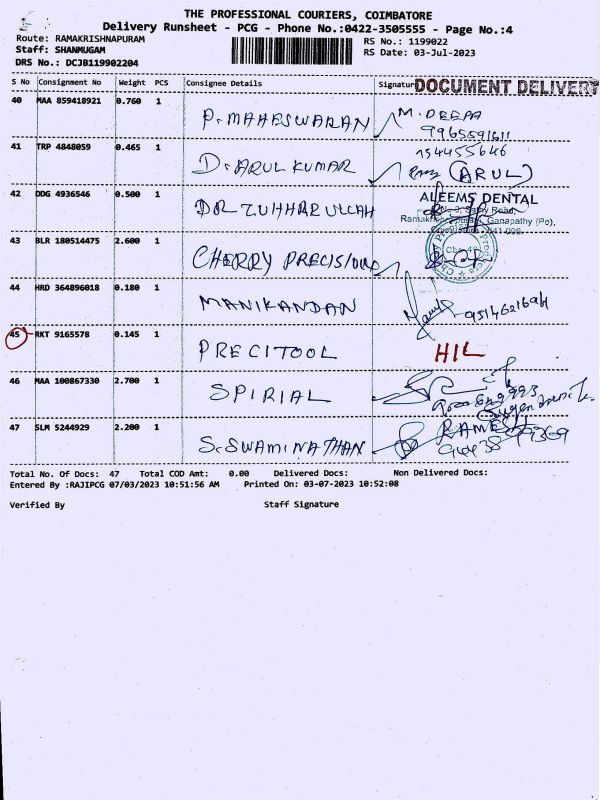 THE PROFESSIONAL COURIERS, COIMBATORE
Delivery Runsheet - PCG - Phone No.:0422-3505555 - Page No.:4
Route: RAMAKRISHNAPURAM
Staff: SHANMUGAM
DRS No.: DCJB119902204
RS No.: 1199022
RS Date: 03-Jul-2023
S No Consignment No Weight PCS Consignee Details Signatur DOCUMENT DELIVERY
40 MAA 859418921 0.760 1 P. MAHESWARAN M. DEEPA
9965591611
41 TRP 4848059 0.465 1 D. ARUL KUMAR (ARUL)
42 DDG 4936546 0.500 1 DR ZUHHARULLAH ALEEMS DENTAL
Ganapathy (Po),
43 BLR 180514475 2.600 1 CHERRY PRECISIONS
44 HRD 364896018 0.180 1 MANIKANDAN 9514621694
45 RKT 9165578 0.145 1 PRECITOOL HIL
46 MAA 100867330 2.700 1 SPIRIAL
47 SLM 5244929 2.200 1 S. SWAMINATHAN RAMESH
Total No. Of Docs: 47 Total COD Amt: 0.00 Delivered Docs: Non Delivered Docs:
Entered By :RAJIPCG 07/03/2023 10:51:56 AM Printed On: 03-07-2023 10:52:08
Verified By Staff Signature